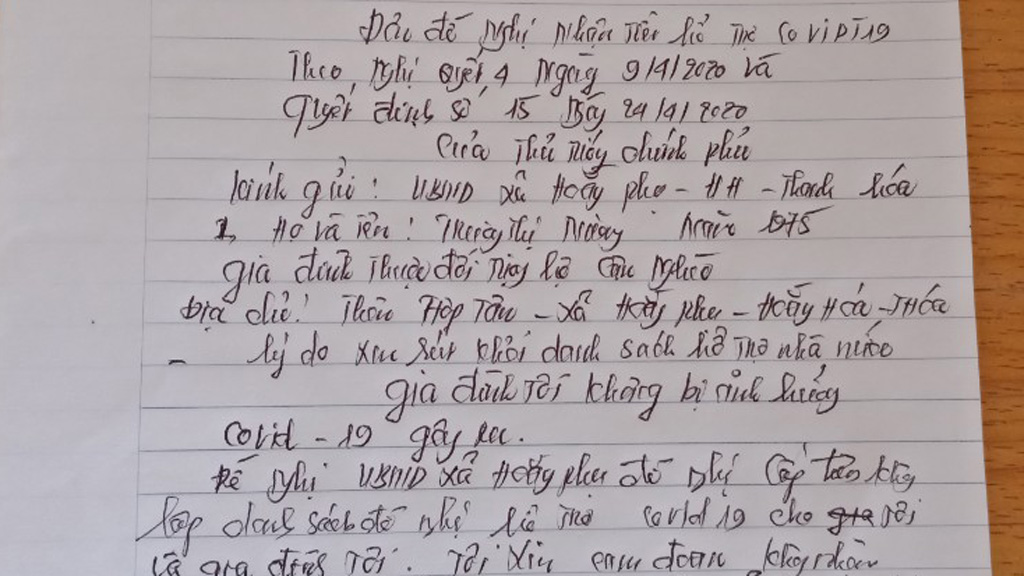 Đơn đề nghị nhận tiền hổ trợ covid19
Theo, nghị quyết, 4 ngày 9/4/2020 và
Quyết định số, 15 ngày 24/4/2020
Của Thủ tướng chính phủ
kính gửi: UBND xã Hoằng phụ - HH - Thanh hóa
1, Họ và tên: Thị Năm 1975
gia đình thuộc đối tượng hộ cận nghèo
Địa chỉ: Thôn Hợp Tân - xã Hoằng phụ - Hoằng Hóa - T Hóa
- lý do xin rút khỏi danh sách hỗ trợ nhà nước
gia đình tôi không bị ảnh hưởng
Covid - 19 gây ra.
Đề nghị UBND xã Hoằng phụ đề nghị cấp trên không
lập danh sách đề nghị hỗ trợ covid 19 cho gia tôi
và gia đình tôi. Tôi xin cam đoan không nhận